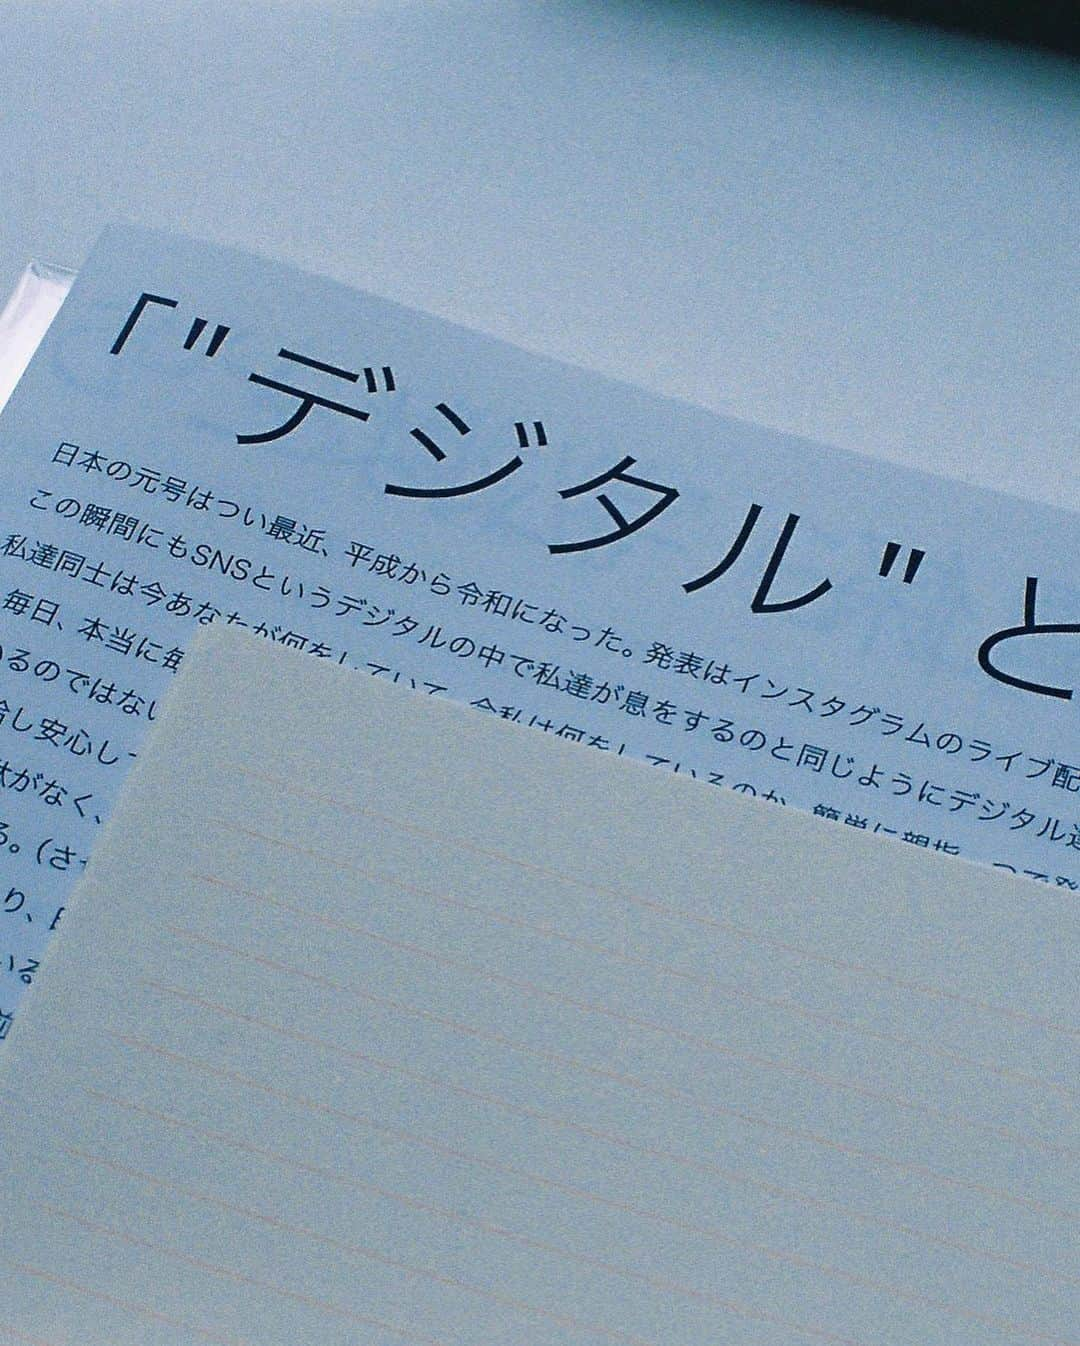 「"デジタル"と
日本の元号はつい最近、平成から令和になった。発表はインスタグラムのライブ配
この瞬間にもSNSというデジタルの中で私達が息をするのと同じようにデジタル
私達同士は今あなたが何をしていて、今私は何をしているのか、簡単に親指一つで発
毎日、本当に毎
いるのではない
し安心しっ
がなく、
る。(さ
り、
いる
前